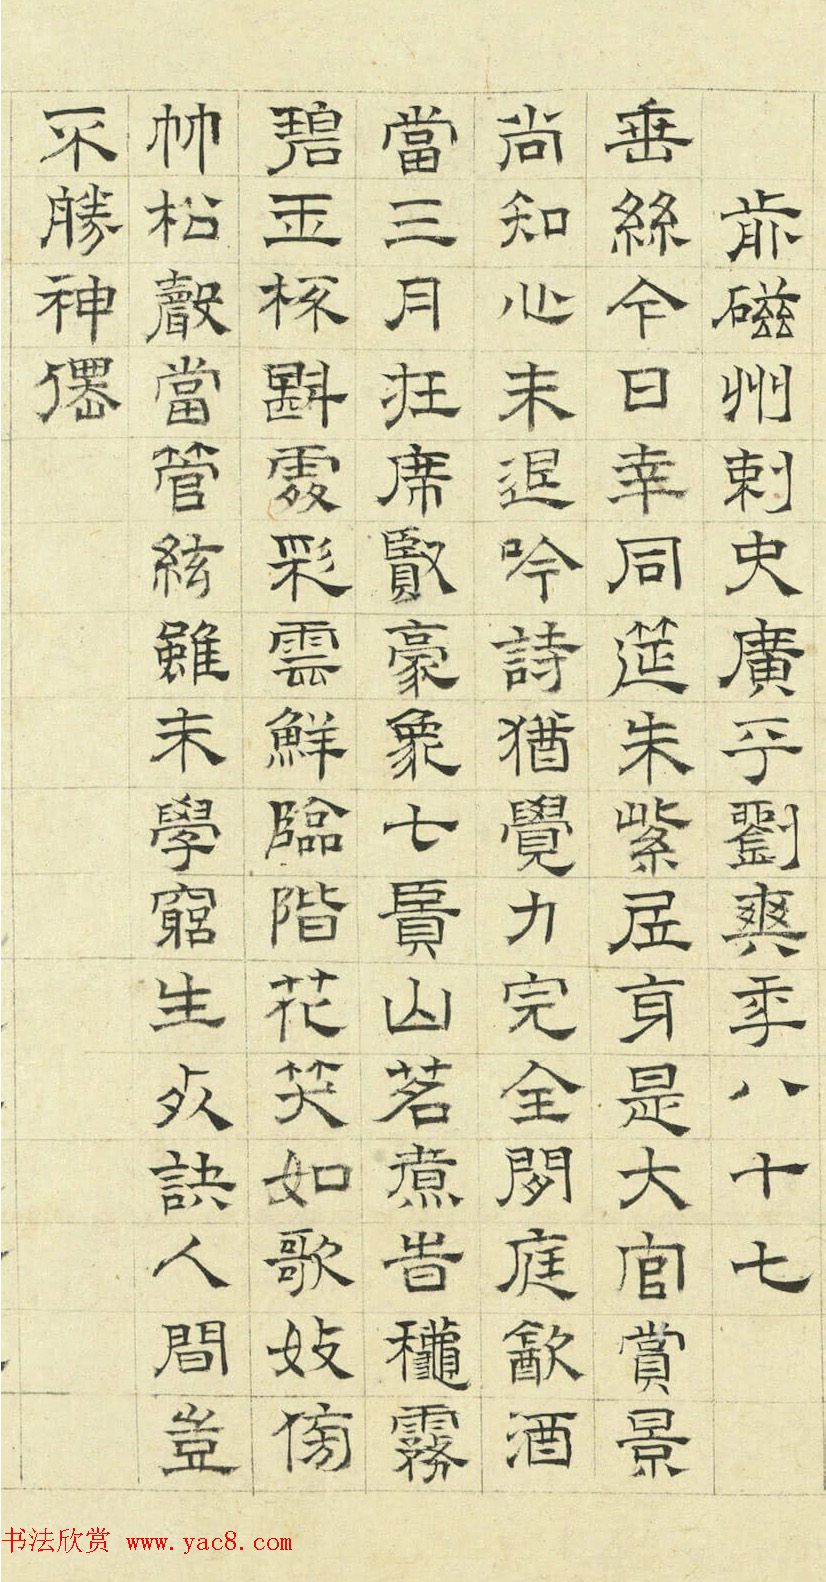 前磁州刺史廣平劉爽年八十七
垂絲今日幸同筵朱紫居身是大官賞景
尚知心未退吟詩猶覺力完全閒庭飲酒
當三月在席賢豪象七賢山茗煮時龝霧
碧玉杯斟處彩雲鮮臨階花笑如歌妓傍
竹松聲當管絃雖未學窮生死訣人間豈
不勝神僊
书法欣赏 www.yac8.com